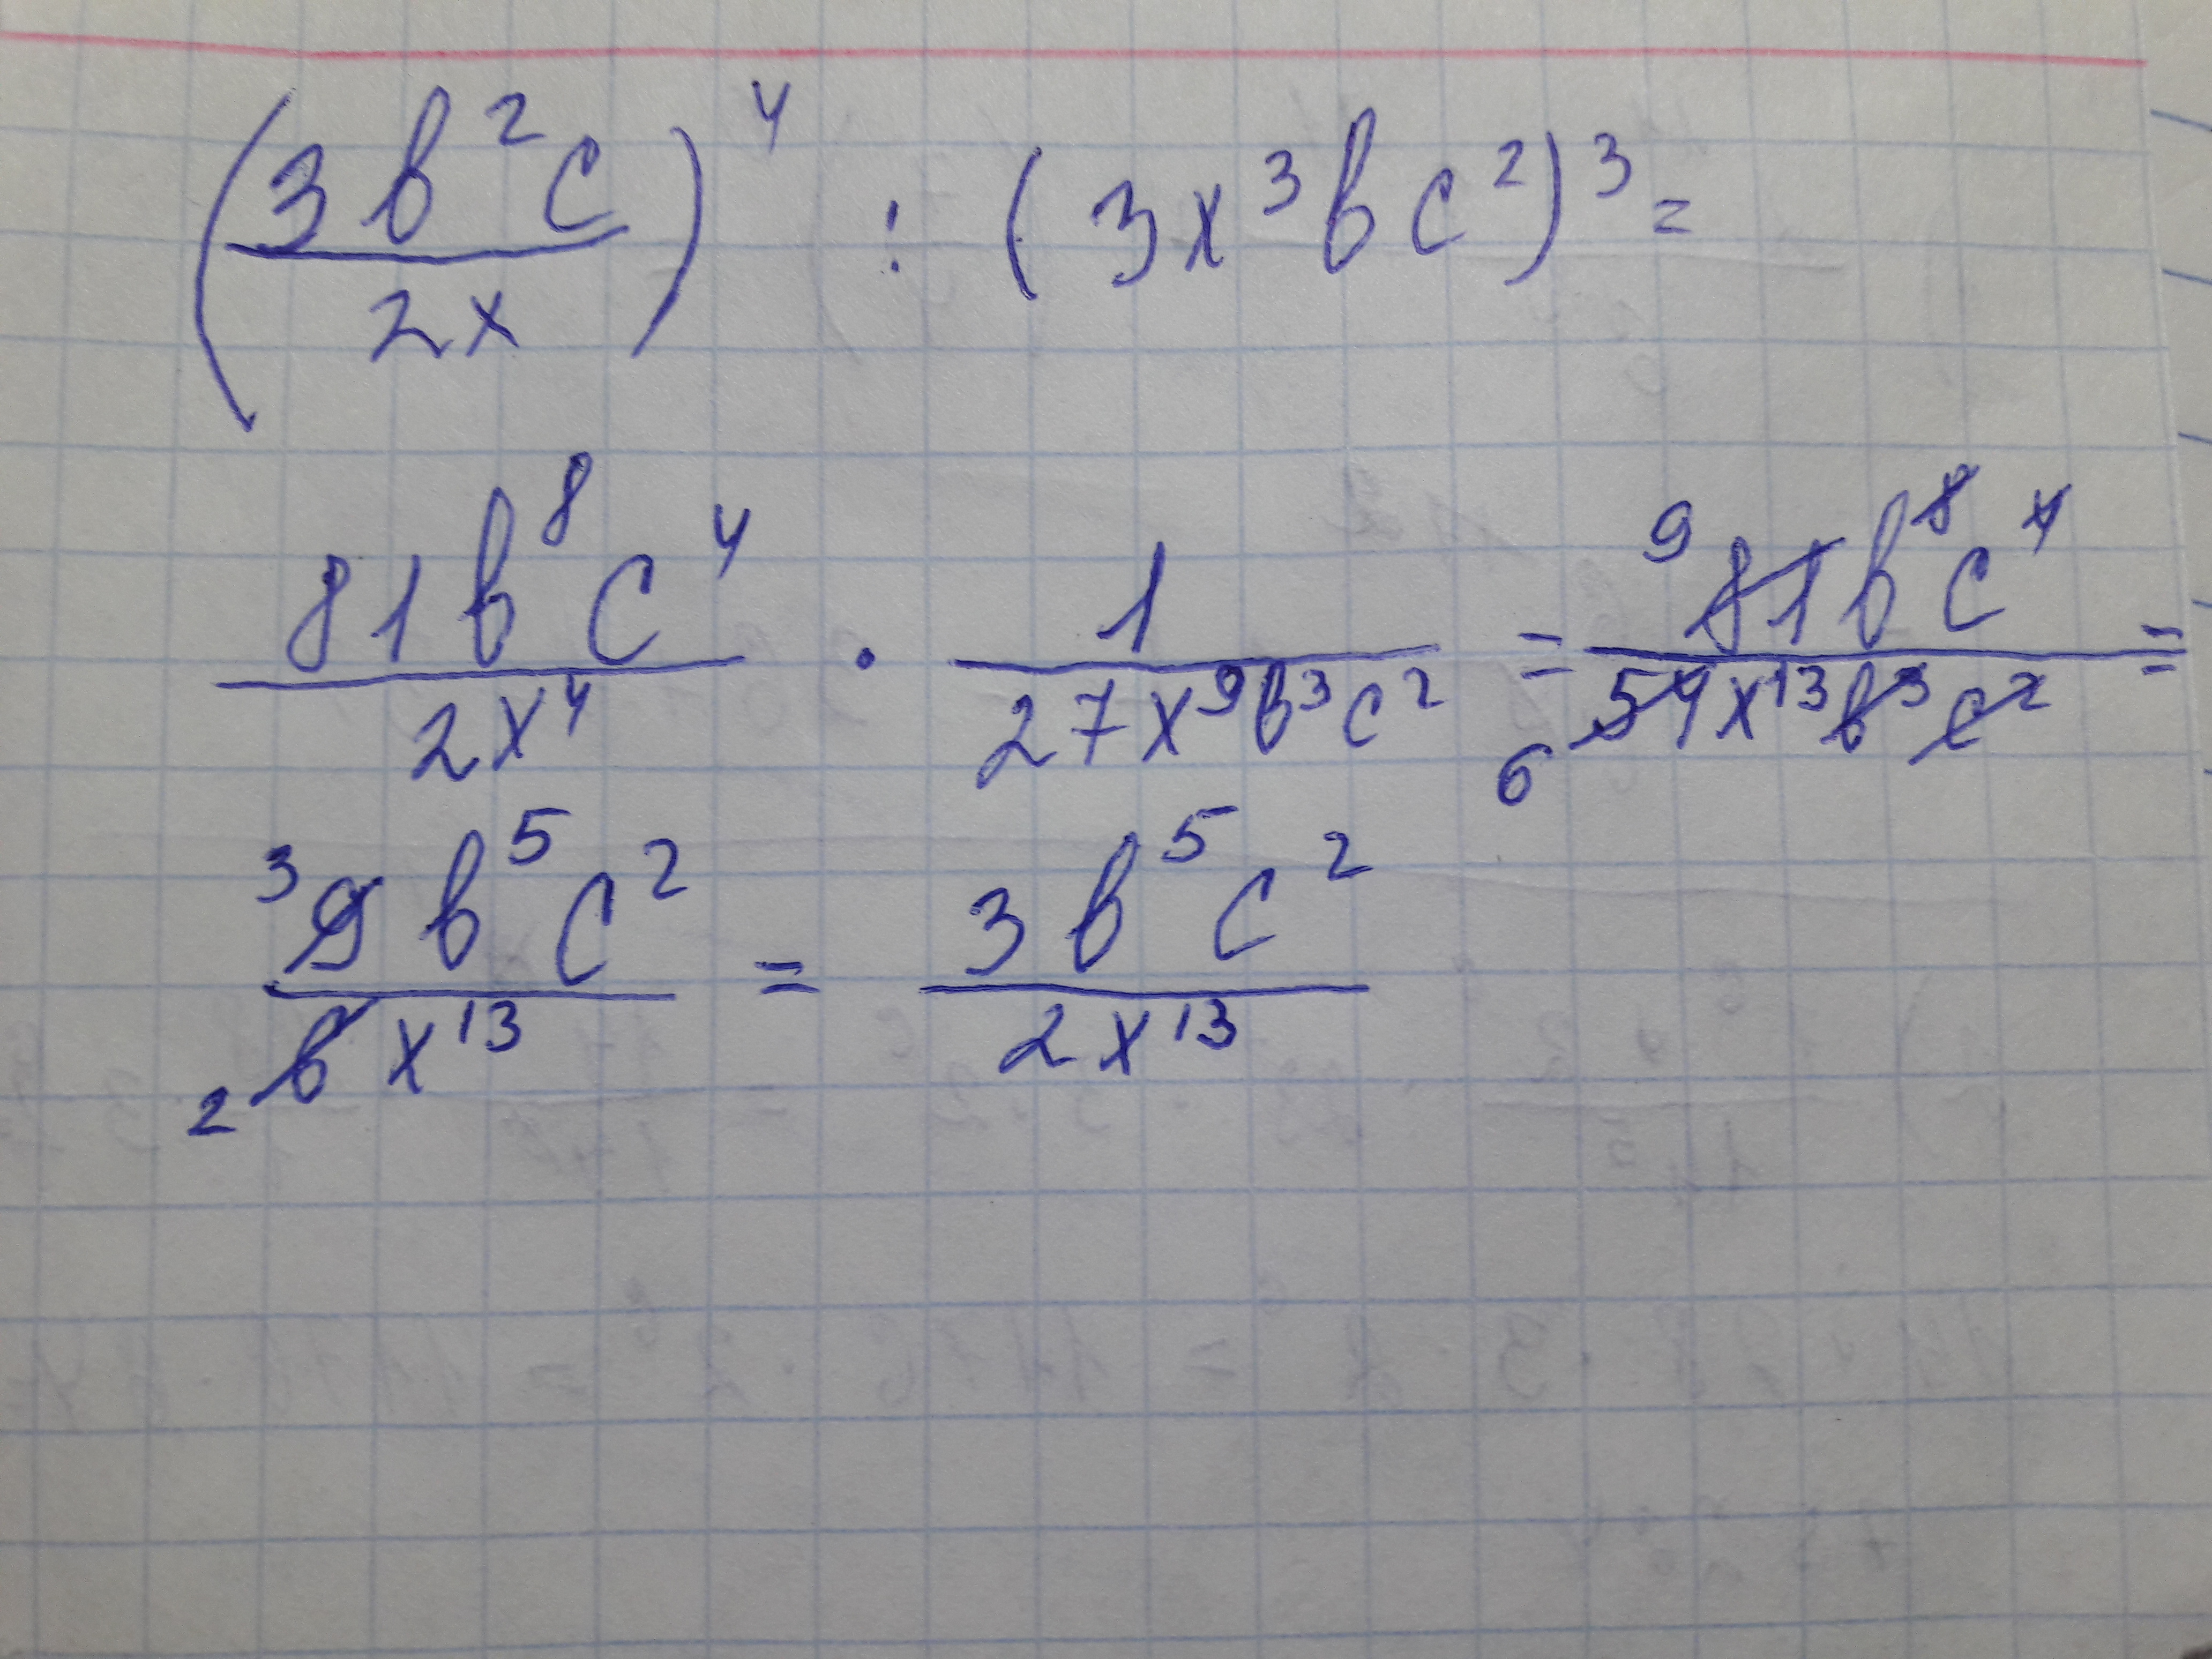 (3b²c / 2x)⁴ : (3x³bc²)³ =
81b⁸c⁴ / 2x⁴ · 1 / 27x⁹b³c² = ⁹81b⁸c⁴ / ₆54x¹³b³c² =
³9b⁵c² / ₂6x¹³ = 3b⁵c² / 2x¹³